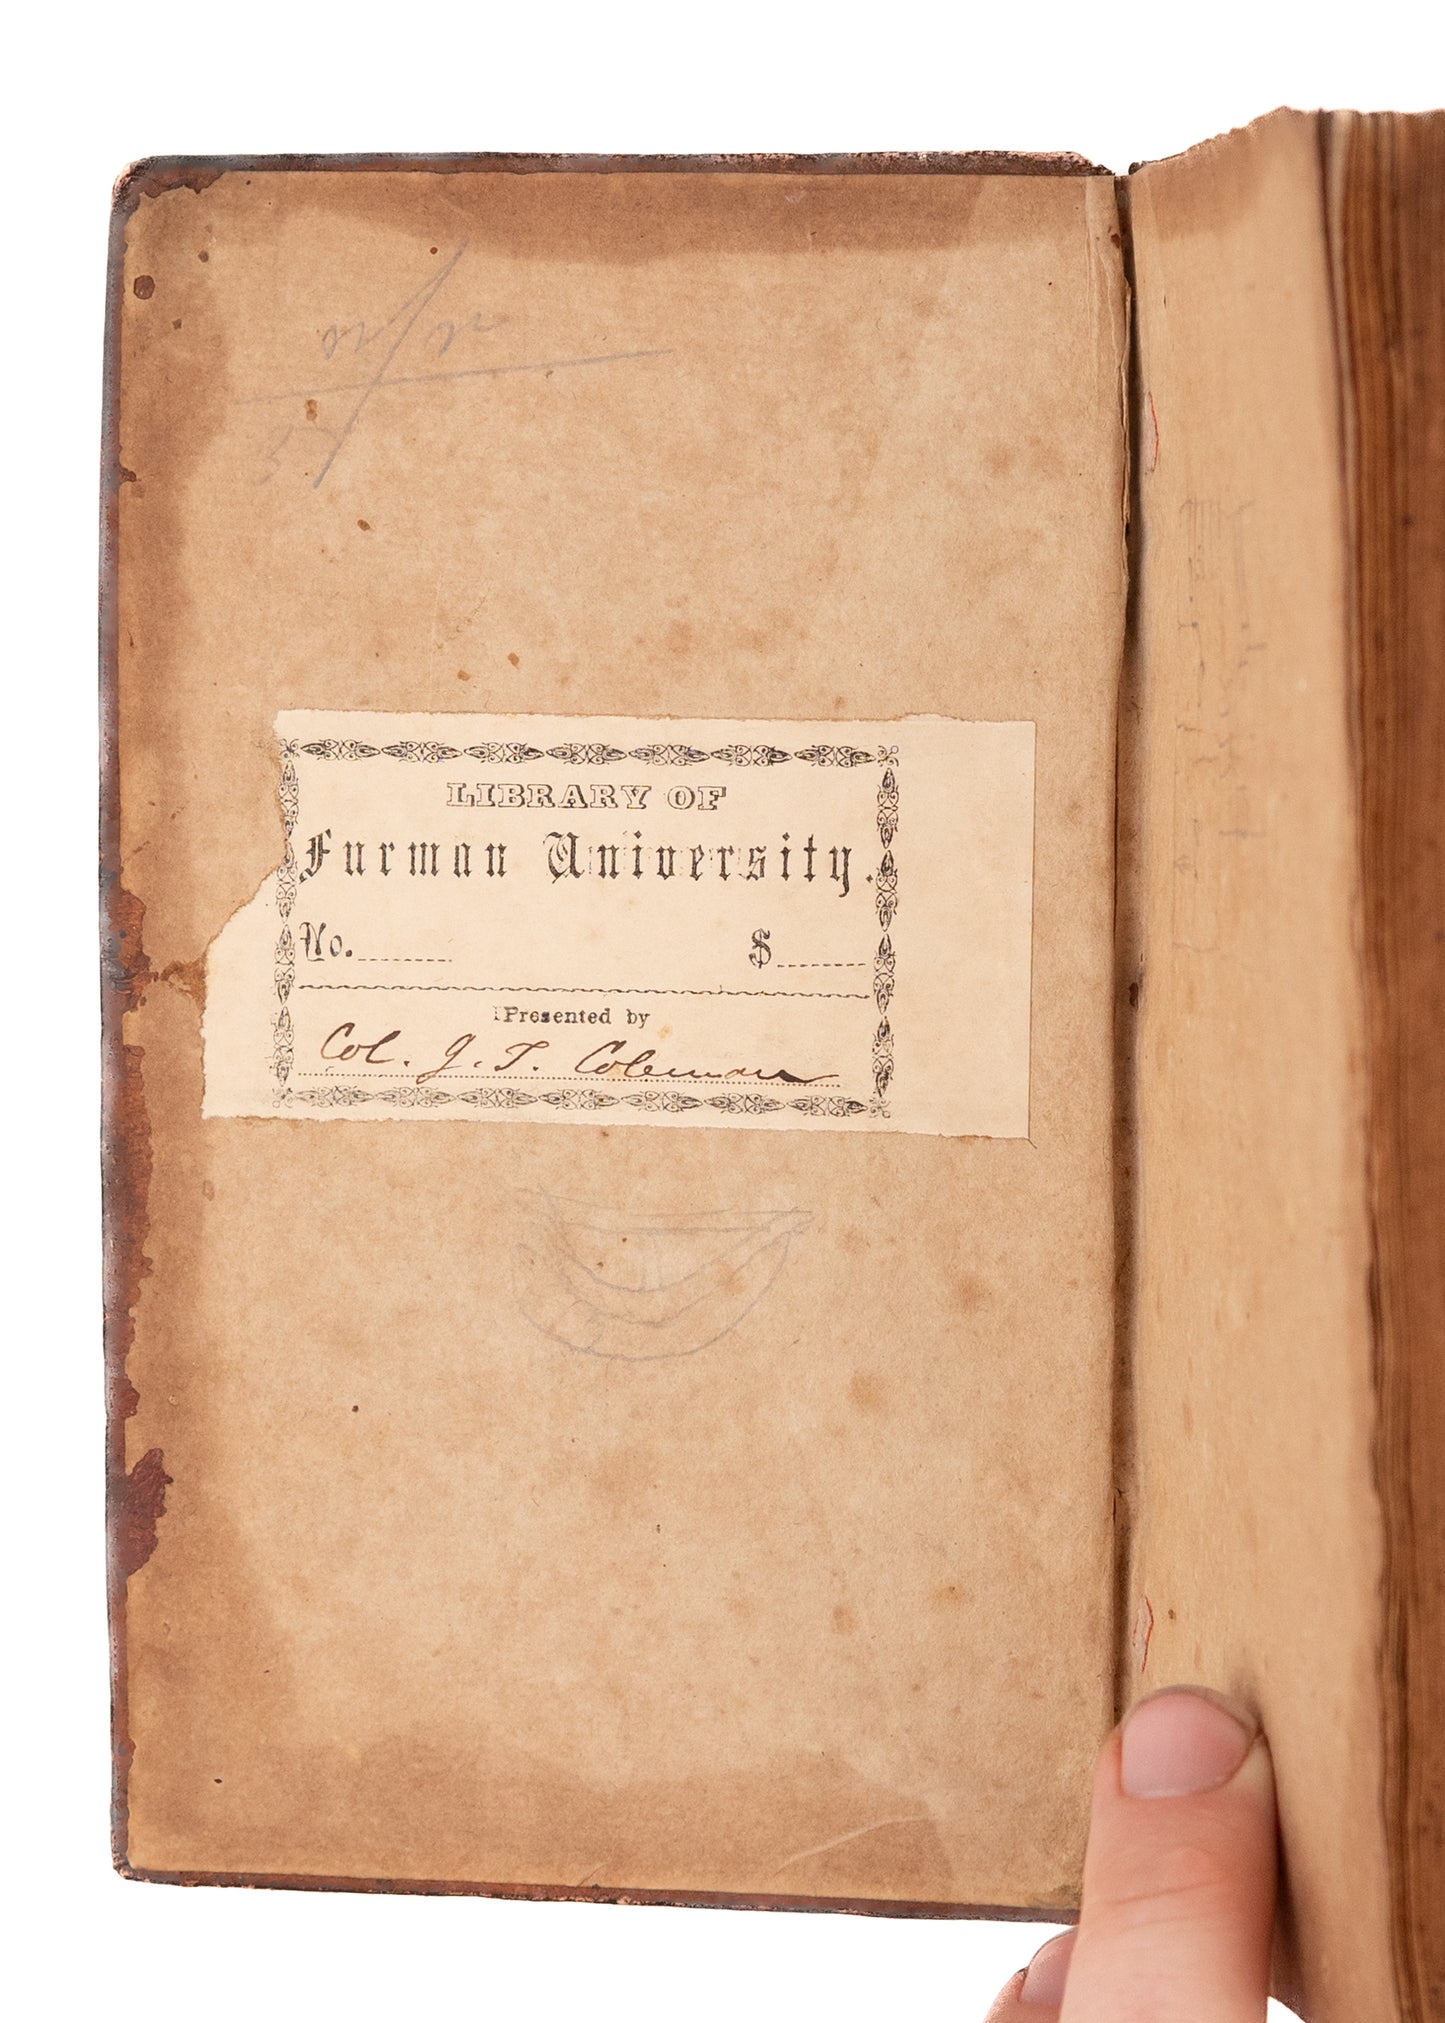 LIBRARY OF
Furman University.
No. $
Presented by
Col. J. T. Coleman